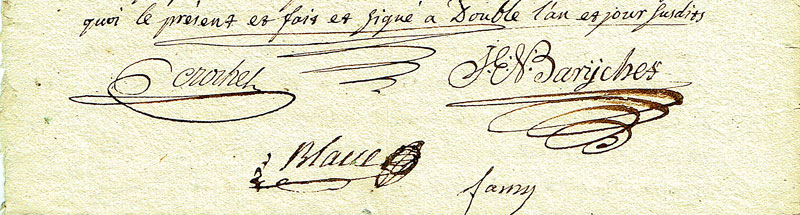 quoi le présent et fait et signé à Double l'an et jour susdits
Crochet J. E. N. Barÿches
Blaue
famy